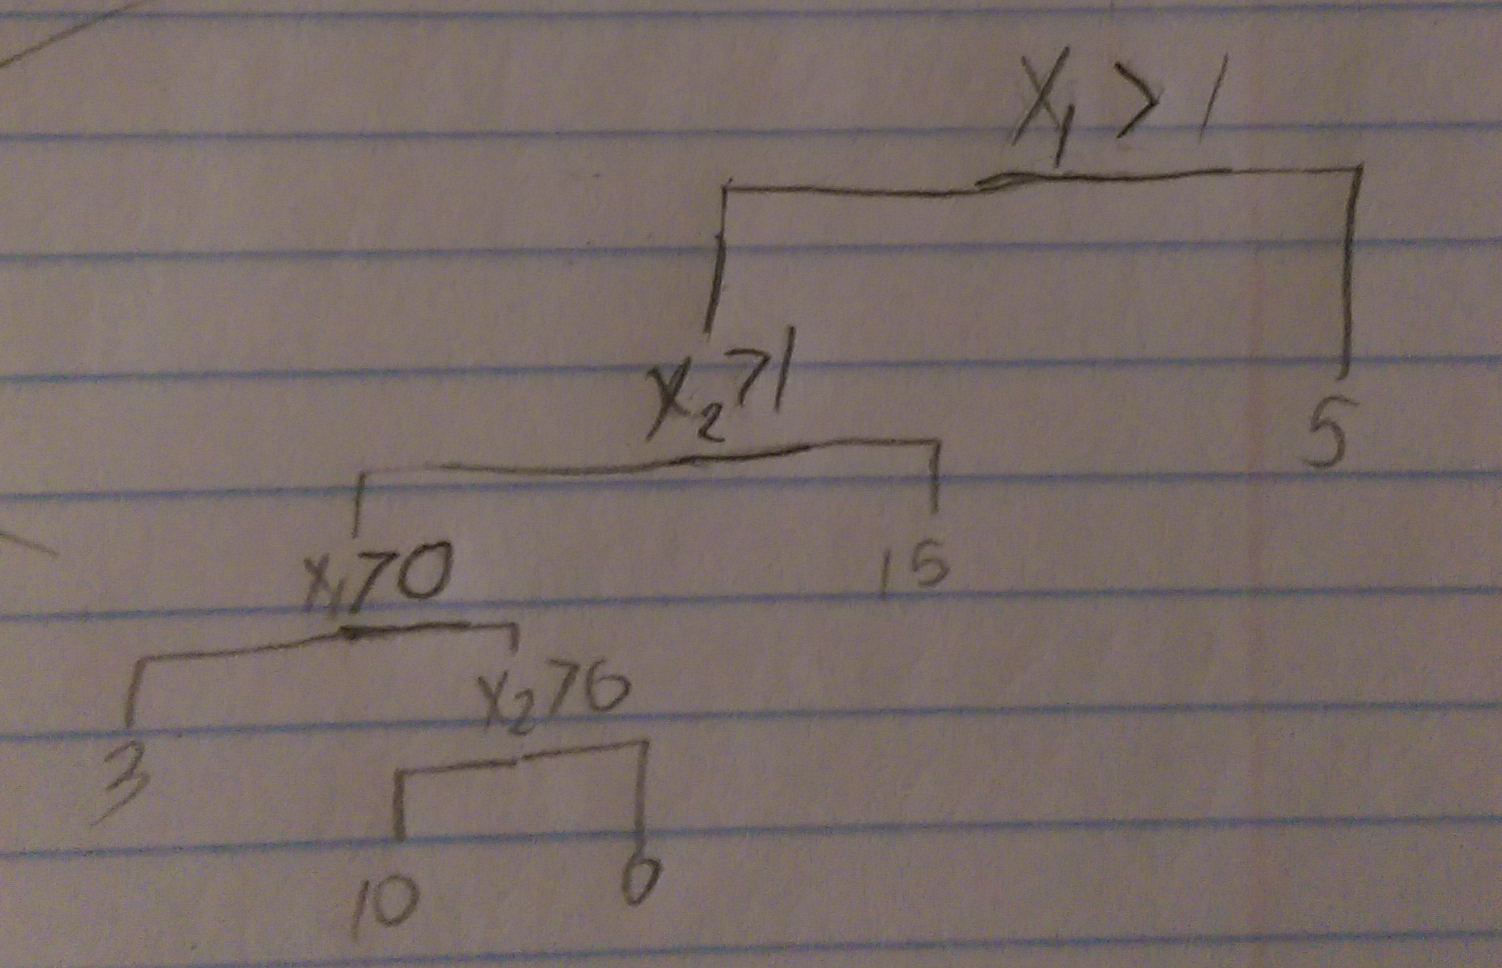 X₁ > 1
X₂>1
5
X₁>0
15
X₂>0
3
10
0